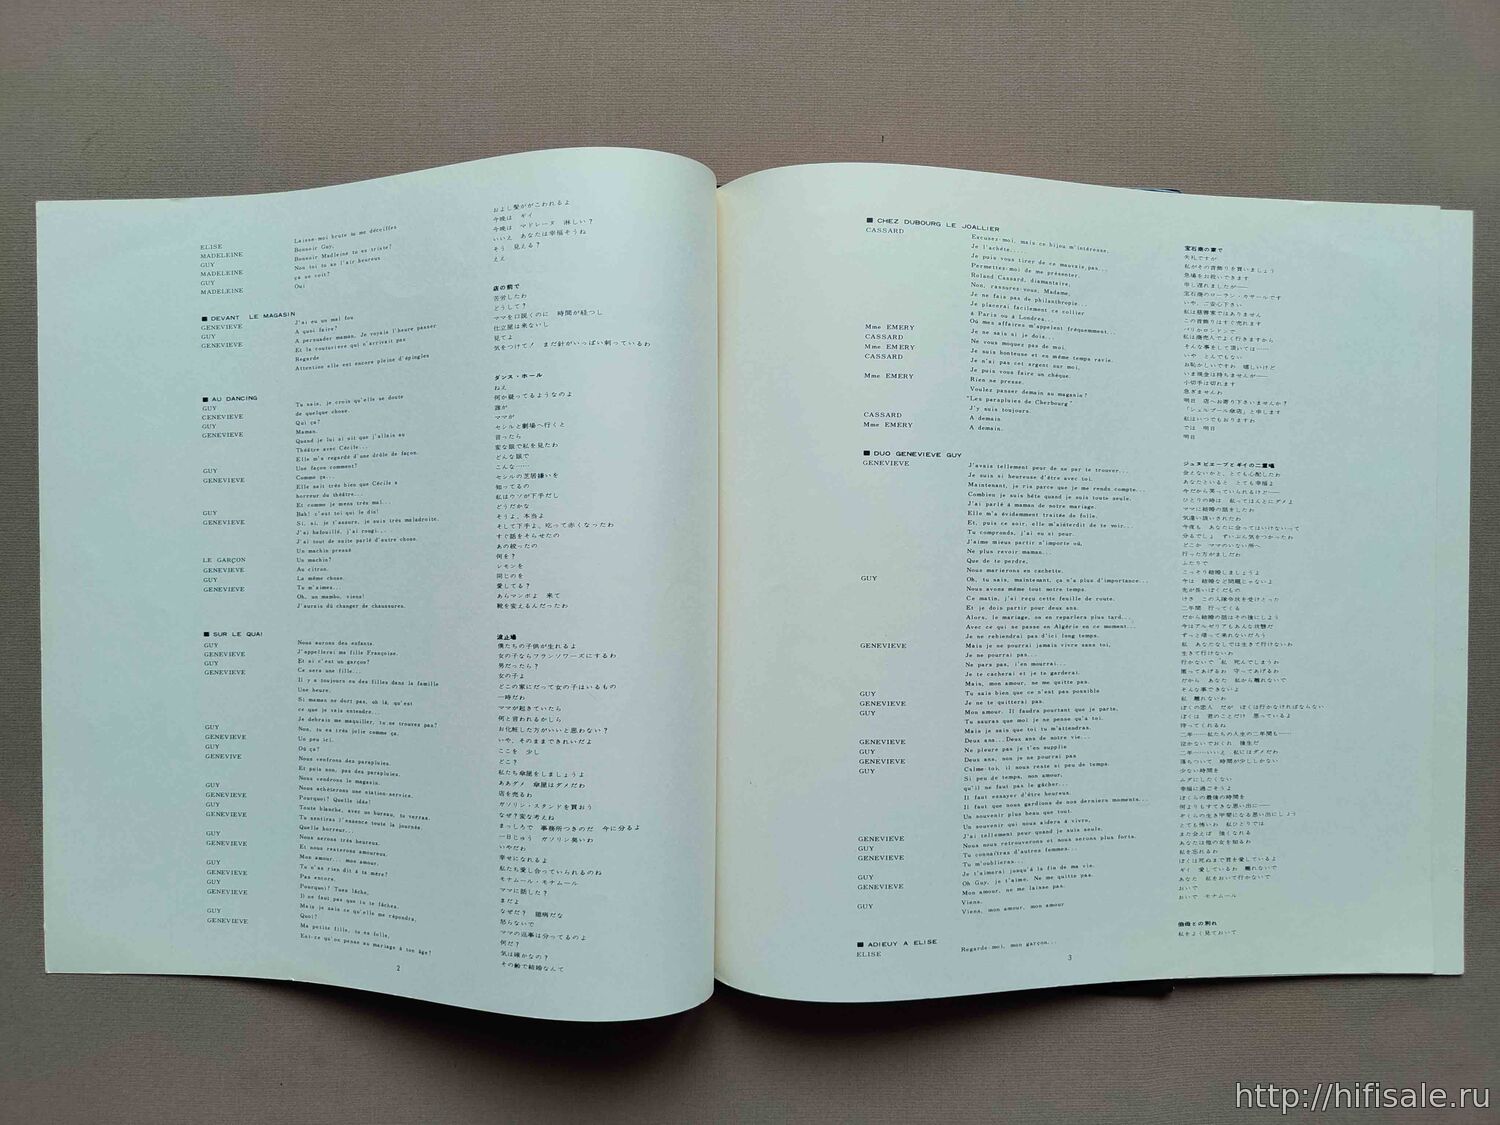 ELISE Laisse-moi brute tu me décoiffes
MADELEINE Bonsoir Guy,
GUY Bonsoir Madleine tu es triste?
MADELEINE Non toi tu as l'air heureux
GUY ça se voit?
MADELEINE Oui
およし髪がこわれるよ
今晩は ギイ
今晩は マドレーヌ 淋しい?
いいえ あなたは幸福そうね
そう 見える?
ええ
■ DEVANT LE MAGASIN
GENEVIEVE J'ai eu un mal fou.
GUY A quoi faire?
GENEVIEVE A persuader maman, Je voyais l'heure passer
Et la couturière qui n'arrivait pas
Regarde
Attention elle est encore pleine d'épingles
店の前で
苦労したわ
どうして?
ママを口説くのに 時間が経つし
仕立屋は来ないし
見てよ
気をつけて! まだ針がいっぱい刺っているわ
■ AU DANCING
GUY Tu sais, je crois qu'elle se doute
de quelque chose.
CENEVIEVE Qui ça?
GUY Maman.
GENEVIEVE Quand je lui ai dit que j'allais au
Théâtre avec Cécile...
Elle m'a regardé d'une drôle de façon.
GUY Une façon comment?
GENEVIEVE Comme ça...
Elle sait très bien que Cécile a
horreur du théâtre...
Et comme je mens très mal...
GUY Bah! c'est toi qui le dis!
GENEVIEVE Si, si, je t'assure, je suis très maladroite.
J'ai bafouillé, j'ai rougi...
J'ai tout de suite parlé d'autre chose.
LE GARÇON Un machin pressé
GENEVIEVE Un machin?
GUY Au citron.
GENEVIEVE La même chose.
Tu m'aimes...
Oh, un mambo, viens!
J'aurais dû changer de chaussures.
ダンス・ホール
ねえ
何か疑ってるようなのよ
誰が
ママが
セシルと劇場へ行くと
言ったら
変な眼で私を見たわ
どんな眼で
こんな……
セシルの芝居嫌いを
知ってるの
私はウソが下手だし
どうだかな
そうよ、本当よ
そして下手よ、吃って赤くなったわ
すぐ話をそらせたの
あの絞ったの
何を?
レモンを
同じのを
愛してる?
あらマンボよ 来て
靴を変えるんだったわ
■ SUR LE QUAI
GUY Nous aurons des enfants.
GENEVIEVE J'appellerai ma fille Françoise.
GUY Et si c'est un garçon?
GENEVIEVE Ce sera une fille...
Il y a toujours eu des filles dans la famille
Une heure.
Si maman ne dort pas, oh là, qu'est
ce que je vais entendre...
Je debrais me maquiller, tu ne trouves pas?
GUY Non, tu es très jolie comme ça.
GENEVIEVE Un peu ici.
GUY Où ça?
GENEVIVE Nous vendrons des parapluies.
Et puis non, pas des parapluies.
Nous vendrons le magasin.
GUY Nous achèterons une station-service.
GENEVIEVE Pourquoi? Quelle idée!
GUY Toute blanche, avec un bureau, tu verras.
GENEVIEVE Tu sentiras l'essence toute la journée.
Quelle horreur...
GUY Nous serons très heureux.
GENEVIEVE Et nous resterons amoureux.
Mon amour... mon amour.
GUY Tu n'as rien dit à ta mère?
GENEVIEVE Pas encore.
GUY Pourquoi? Tues lâche.
GENEVIEVE Il ne faut pas que tu te fâches.
Mais je sais ce qu'elle me répondra.
GUY Quoi?
GENEVIEVE Ma petite fille, tu es folle,
Est-ce qu'on pense au mariage à ton âge?
波止場
僕たちの子供が生れるよ
女の子ならフランソワーズにするわ
男だったら?
女の子よ
どこの家にだって女の子はいるもの
一時だわ
ママが起きていたら
何と言われるかしら
お化粧した方がいいと思わない?
いや、そのままできれいだよ
ここを 少し
どこ?
私たち傘屋をしましょうよ
ああダメ 傘屋はダメだわ
店を売るわ
ガソリン・スタンドを買おう
なぜ?変な考えね
まっしろで 事務所つきのだ 今に分るよ
一日じゅう ガソリン臭いわ
いやだわ
幸せになれるよ
私たち愛し合っていられるのね
モナムール・モナムール
ママに話した?
まだよ
なぜだ? 臆病だな
怒らないで
ママの返事は分ってるのよ
何だ?
気は確かなの?
その齢で結婚なんて
2
■ CHEZ DUBOURG LE JOALLIER
CASSARD Excusez-moi, mais ce bijou m'intéresse,
Je l'achète...
Je puis vous tirer de ce mauvais pas...
Permettez-moi de me présenter.
Roland Cassard, diamantaire,
Non, rassurez-vous, Madame,
Je ne fais pas de philanthropie...
Je placerai facilement ce collier
à Paris ou à Londres...
Où mes affaires m'appelent fréquemment...
Mme EMERY Je ne sais si je dois...
CASSARD Ne vous moquez pas de moi.
Mme EMERY Je suis honteuse et en même temps ravie.
CASSARD Je n'ai pas cet argent sur moi,
Je puis vous faire un chèque.
Mme EMERY Rien ne presse.
Voulez passer demain au magasin?
"Les parapluies de Cherbourg"
J'y suis toujours.
CASSARD A demain
Mme EMERY A demain.
宝石商の家で
失礼ですが
私がその首飾りを買いましょう
急場をお救いできます
申し遅れましたが──
宝石商のローラン・カサールです
いや、ご安心下さい
私は慈善家ではありません
この首飾りはすぐ売れます
パリかロンドンで
私は商売人でよく行きますから
そんな事をして頂いては──
いや とんでもない
お恥かしいですわ 嬉しいけど
いま現金は持ちませんが──
小切手は切れます
急ぎませんわ
明日 店へお寄り下さいませんか?
「シェルブール傘店」と申します
私はいつでもおりますわ
では 明日
明日
■ DUO GENEVIEVE GUY
GENEVIEVE J'avais tellement peur de ne par te trouver...
Je suis si heureuse d'être avec toi.
Maintenant, je ris parce que je me rends compte...
Combien je suis bête quand je suis toute seule.
J'ai parlé à maman de notre mariage.
Elle m'a évidamment traitée de folle.
Et, puis ce soir, elle m'aisterdit de te voir...
Tu comprends, j'ai eu si peur.
J'aime mieux partir n'importe où,
Ne plus revoir maman...
Que de te perdre.
Nous marierons en cachette.
GUY Oh, tu sais, maintenant, ça n'a plus d'importance...
Nous avons même tout notre temps.
Ce matin, j'ai reçu cette feuille de route.
Et je dois partir pour deux ans.
Alors, le mariage, on en reparlera plus tard...
Avec ce qui se passe en Algérie en ce moment...
Je ne rebiendrai pas d'ici long temps.
GENEVIEVE Mais je ne pourrai jamais vivre sans toi,
Je ne pourrai pas...
Ne pars pas, i'en mourrai...
Je te cacherai et je te garderai.
Mais, mon amour, ne me quitte pas.
GUY Tu sais bien que ce n'est pas possible
GENEVIEVE Je ne te quitterai pas.
GUY Mon amour. Il faudra pourtant que je parte.
Tu sauras que moi je ne pense qu'à toi.
Mais je sais que toi tu m'attendras.
GENEVIEVE Deux ans... Deux ans de notre vie...
GUY Ne pleure pas je t'en supplie
GENEVIEVE Deux ans, non je ne pourrai pas
GUY Calme-toi, il nous reste si peu de temps.
Si peu de temps, mon amour,
qu'il ne faut pas le gâcher...
Il faut essayer d'être heureux.
Il faut que nous gardions de nos derniers moments...
Un souvenir plus beau que tout.
Un souvenir qui nous aidera à vivre,
GENEVIEVE J'ai tellement peur quand je suis seule.
GUY Nous nous retrouverons et nous serons plus forts.
GENEVIEVE Tu connaîtras d'autres femmes...
Tu m'oublieras...
GUY Je t'aimerai jusqu'à la fin de ma vie.
GENEVIEVE Oh Guy, je t'aime. Ne me quitte pas.
Mon amour, ne me laisse pas.
GUY Viens,
Viens, mon amour, mon amour
ジュヌビエーブとギイの二重唱
会えないかと、とても心配したわ
あなたといると とても幸福よ
今だから笑っていられるけど──
ひとりの時は 私ってほんとにダメよ
ママに結婚の話をしたわ
気違い扱いされたわ
今夜も あなたに会ってはいけないって
分るでしょ ずいぶん気をつかったわ
どこか ママのいない所へ
行った方がましだわ
ふたりで
こっそり結婚しましょうよ
今は 結婚など問題じゃないよ
先が長いぼくだもの
けさ この入隊令状を受けとった
二年間 行ってくる
だから結婚の話はその後にしよう
今はアルゼリアもあんな状態だ
ずっと帰って来れないだろう
私 あなたなしでは生きて行けないわ
生きて行けないわ
行かないで 私 死んでしまうわ
匿ってあげるわ 守ってあげるわ
だから あなた 私から離れないで
そんな事できないよ
私 離れないわ
ぼくの恋人 だが ぼくは行かなければならない
ぼくは 君のことだけ 思っているよ
待ってくれるね
二年……私たちの人生の二年間も──
泣かないでおくれ 後生だ
二年……いいえ 私にはダメだわ
落ちついて 時間が少ししかない
少ない時間を
ムダにしたくない
幸福に過ごそうよ
ぼくらの最後の時間を
何よりもすてきな思い出に──
ぼくらの生き甲斐になる思い出にしよう
とても怖いわ 私ひとりでは
また会えば 強くなれる
あなたは他の女を知るわ
私を忘れるわ
ぼくは死ぬまで君を愛しているよ
ギイ 愛しているわ 離れないで
あなた 私をおいて行かないで
おいで
おいで モナムール
■ ADIEUY A ELISE
ELISE Regarde-moi, mon garçon...
伯母との別れ
私をよく見ておいて
3
http://hifisale.ru